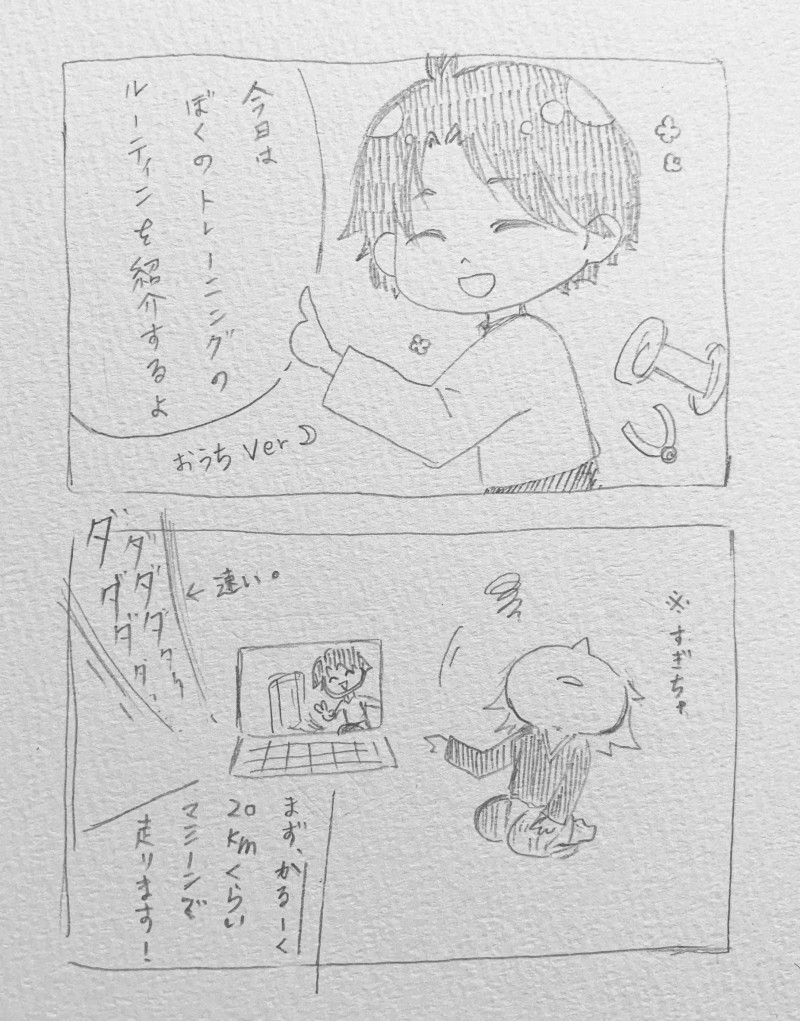 今日は
ぼくのトレーニングの
ルーティンを紹介するよ
おうちver
※すぎちゃ
ダダダダダダ
←速い。
まず、かるーく
20kmくらい
マシーンで
走ります!